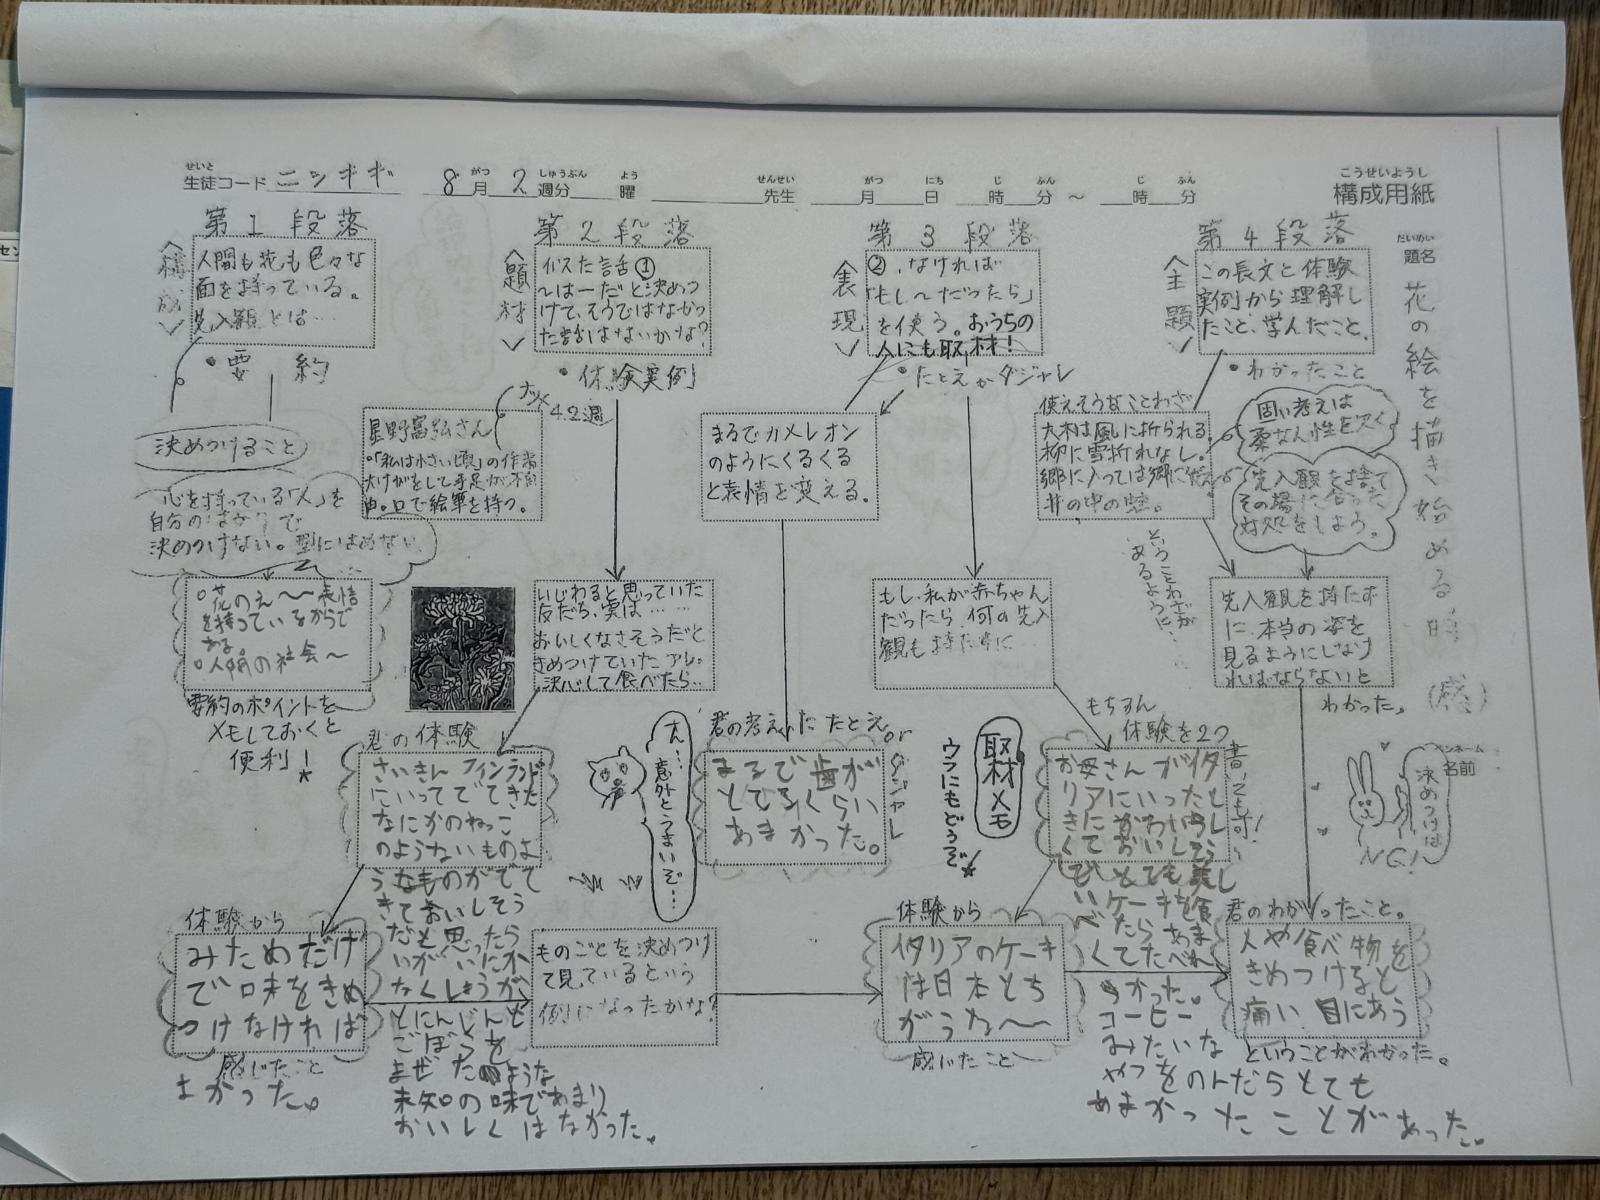 せいと
生徒コード ニシギギ 8月2週分 曜 先生 月 日 時 分 ～ 時 分
こうせいようし
構成用紙
だいめい
題名
花の絵を描き始める時 (感)
ペンネーム
名前
第1段落
＜構成＞
人間も花も色々な
面を持っている。
先入観とは…
・要約
決めつけること
心を持っている「人」を
自分の
決めつけない。型にはめない
○花のえ～～表情
を持っているからで
ある。
○人間の社会～
要約のポイントを
メモしておくと
便利！
第2段落
＜題材＞
似た話①
～は―だと決めつ
けて、そうではなかっ
た話はないかな？
・体験実例
ナツメ
4.2週
星野富弘さん
・「私は小さい頃」の作者
大けがをして手足が不自
由。口で絵筆を持つ。
いじわると思っていた
友だち、実は……
おいしくなさそうだと
きめつけていたアレ。
決心して食べたら…
君の体験
さいきんフィンランド
にいってでてきた
なにかのねっこ
のようないものよ
うなものがでて
きておいしそう
だと思ったら
いがいにか
なくしょうが
とにんじんと
ごぼうを
まぜたのような
未知の味であまり
おいしくはなかった。
体験から
みためだけ
で味をきめ
つけなければ
よかった。
感じたこと
ものごとを決めつけ
て見ているという
例になったかな？
さん…意外とうまいぞ…
第3段落
＜表現＞
②、なければ
「もし～だったら」
を使う。おうちの
人にも取材！
・たとえかダジャレ
まるでカメレオン
のようにくるくる
と表情を変える。
もし、私が赤ちゃん
だったら何の先入
観も持たずに…
君の考えたたとえorダジャレ
まるで歯が
とてるくらい
あまかった。
取材メモ
ウラにもどうぞ
もちろん
体験を2つ
書いても可！
お母さんがイタ
リアにいったと
きにかわいらし
くておいしそう
でとても美し
いケーキを食
べたらあま
くてたべれ
なかった。
コーヒー
みたいな
やつをのんだらとても
あまかったことがあった。
体験から
イタリアのケーキ
は日本とち
がうな～
感じたこと
第4段落
＜主題＞
この長文と体験
実例から理解し
たこと、学んだこと。
・わかったこと
使えそうなことわざ
大木は風に折られる。
柳に雪折れなし。
郷に入っては郷に従え
井の中の蛙。
ということわざが
あるように…
固い考えは
柔なん性を欠く
先入観を捨て
その場に合った
対処をしよう。
先入観を持たず
に、本当の姿を
見るようにしなけ
ればならないと
わかった。
決めつけは
NG！
君のわかったこと。
人や食べ物を
きめつけると
痛い目にあう
ということがわかった。